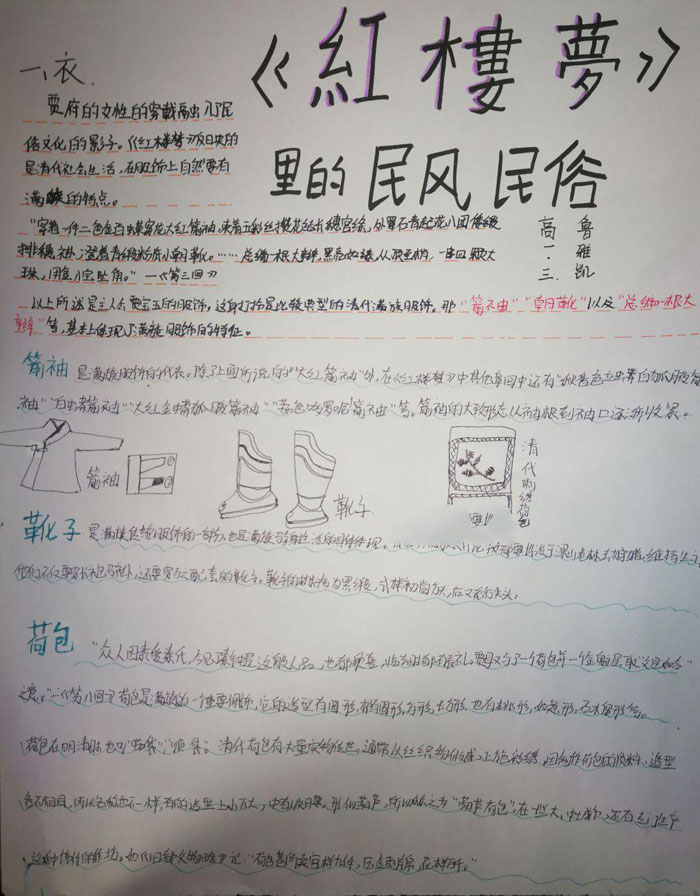 《紅樓夢》
里的民风民俗
高一.三 鲁雅凯
一、衣.
贾府的女性的穿戴高出凡民
俗文化的影子。《红楼梦》反映的
是清代社会生活,在服饰上自然要有
满族的特点。
"穿着一件二色金百蝶穿花大红箭袖,束着五彩丝攒花结长穗宫绦,外罩石青起花八团倭缎
排穗褂,登着青缎粉底小朝靴。……总编一根大辫,黑亮如漆,从顶至梢,一串四颗大
珠,用金八宝坠角。"—《第三回》
以上所述是主人公贾宝玉的服饰,这身打扮是比较典型的清代满族服饰。那"箭袖""朝靴"以及"总编一根大
辫"等,基本上体现了满族服饰的特征。
箭袖 是满族服饰的代表。除了上面所说的"大红箭袖"外,在《红楼梦》中其他章回中还有"秋香色立蟒白狐腋箭
袖""白蟒箭袖""大红金蟒狐腋箭袖""茄色哆罗呢箭袖"等。箭袖的大致形态从袖根到袖口逐渐收紧。
箭袖
靴子
清代刺绣荷包
靴子 是满族传统服饰的一部分,也是满族骑射生活的具体体现。
他们不仅要穿袍褂,还要穿与之配套的靴子。靴的材料为黑缎,式样初尚方头,后又流行尖头。
荷包 "众人因素爱秦氏,今见秦钟是这般人品,也都欢喜,临去时都有表礼。贾母又与了一个荷包并一个金魁星,取"文星和合"
之意。"—《第八回》荷包是满族的一种重要佩饰,它的造型有圆形,椭圆形,方形,长方形,也有桃形,如意形,石榴形等。
荷包在明清时也叫"茄袋""顺袋"。清代荷包有大量实物传世。通常以丝织物做成,上施彩绣,因制作荷包的质料、造型
各不相同,所以名称也不一样,有的造型上小下大,中有收腰,形似葫芦,所以称之为"葫芦荷包"。在一些大、中城市,还有专门生产